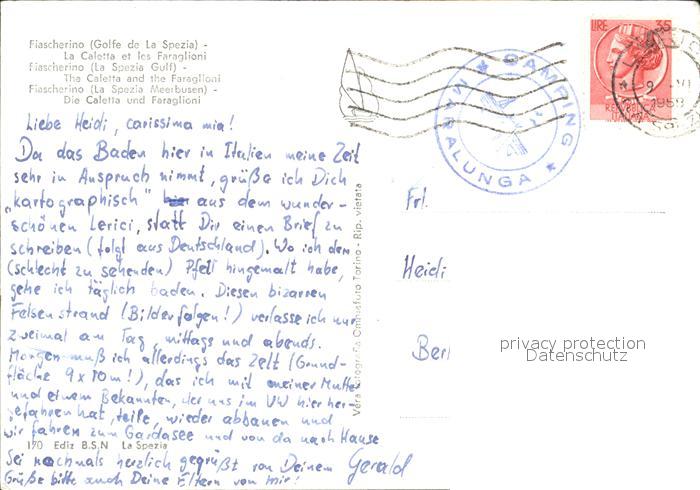 Fiascherino (Golfe de La Spezia) -
La Caletta et les Faraglioni
Fiascherino (La Spezia Gulf) -
The Caletta and the Faraglioni
Fiascherino (La Spezia Meerbusen) -
Die Caletta und Faraglioni
Liebe Heidi, carissima mia!
Da das Baden hier in Italien meine Zeit
sehr in Anspruch nimmt, grüße ich Dich
„kartographisch" aus dem wunder-
schönen Lerici, statt Dir einen Brief zu
schreiben (folgt aus Deutschland). Wo ich den
(schlecht zu sehenden) Pfeil hingemalt habe,
gehe ich täglich baden. Diesen bizarren
Felsenstrand (Bilder folgen!) verlasse ich nur
zweimal am Tag, mittags und abends.
Morgen muß ich allerdings das Zelt (Grund-
fläche 9 x 10 m!), das ich mit meiner Mutter
und einem Bekannten, der uns im VW hier her-
gefahren hat, teile, wieder abbauen und
wir fahren zum Gardasee und von da nach Hause
170 Ediz B.S.N La Spezia
Sei nochmals herzlich gegrüßt von Deinem Gerald
Grüße bitte auch Deine Eltern von mir!
Vera Fotografia Omniafoto Torino - Rip. vietata
CAMPING
MARALUNGA
LIRE 35
REPUBBLICA
ITALIANA
1958
Frl.
Heidi
Berl
privacy protection
Datenschutz